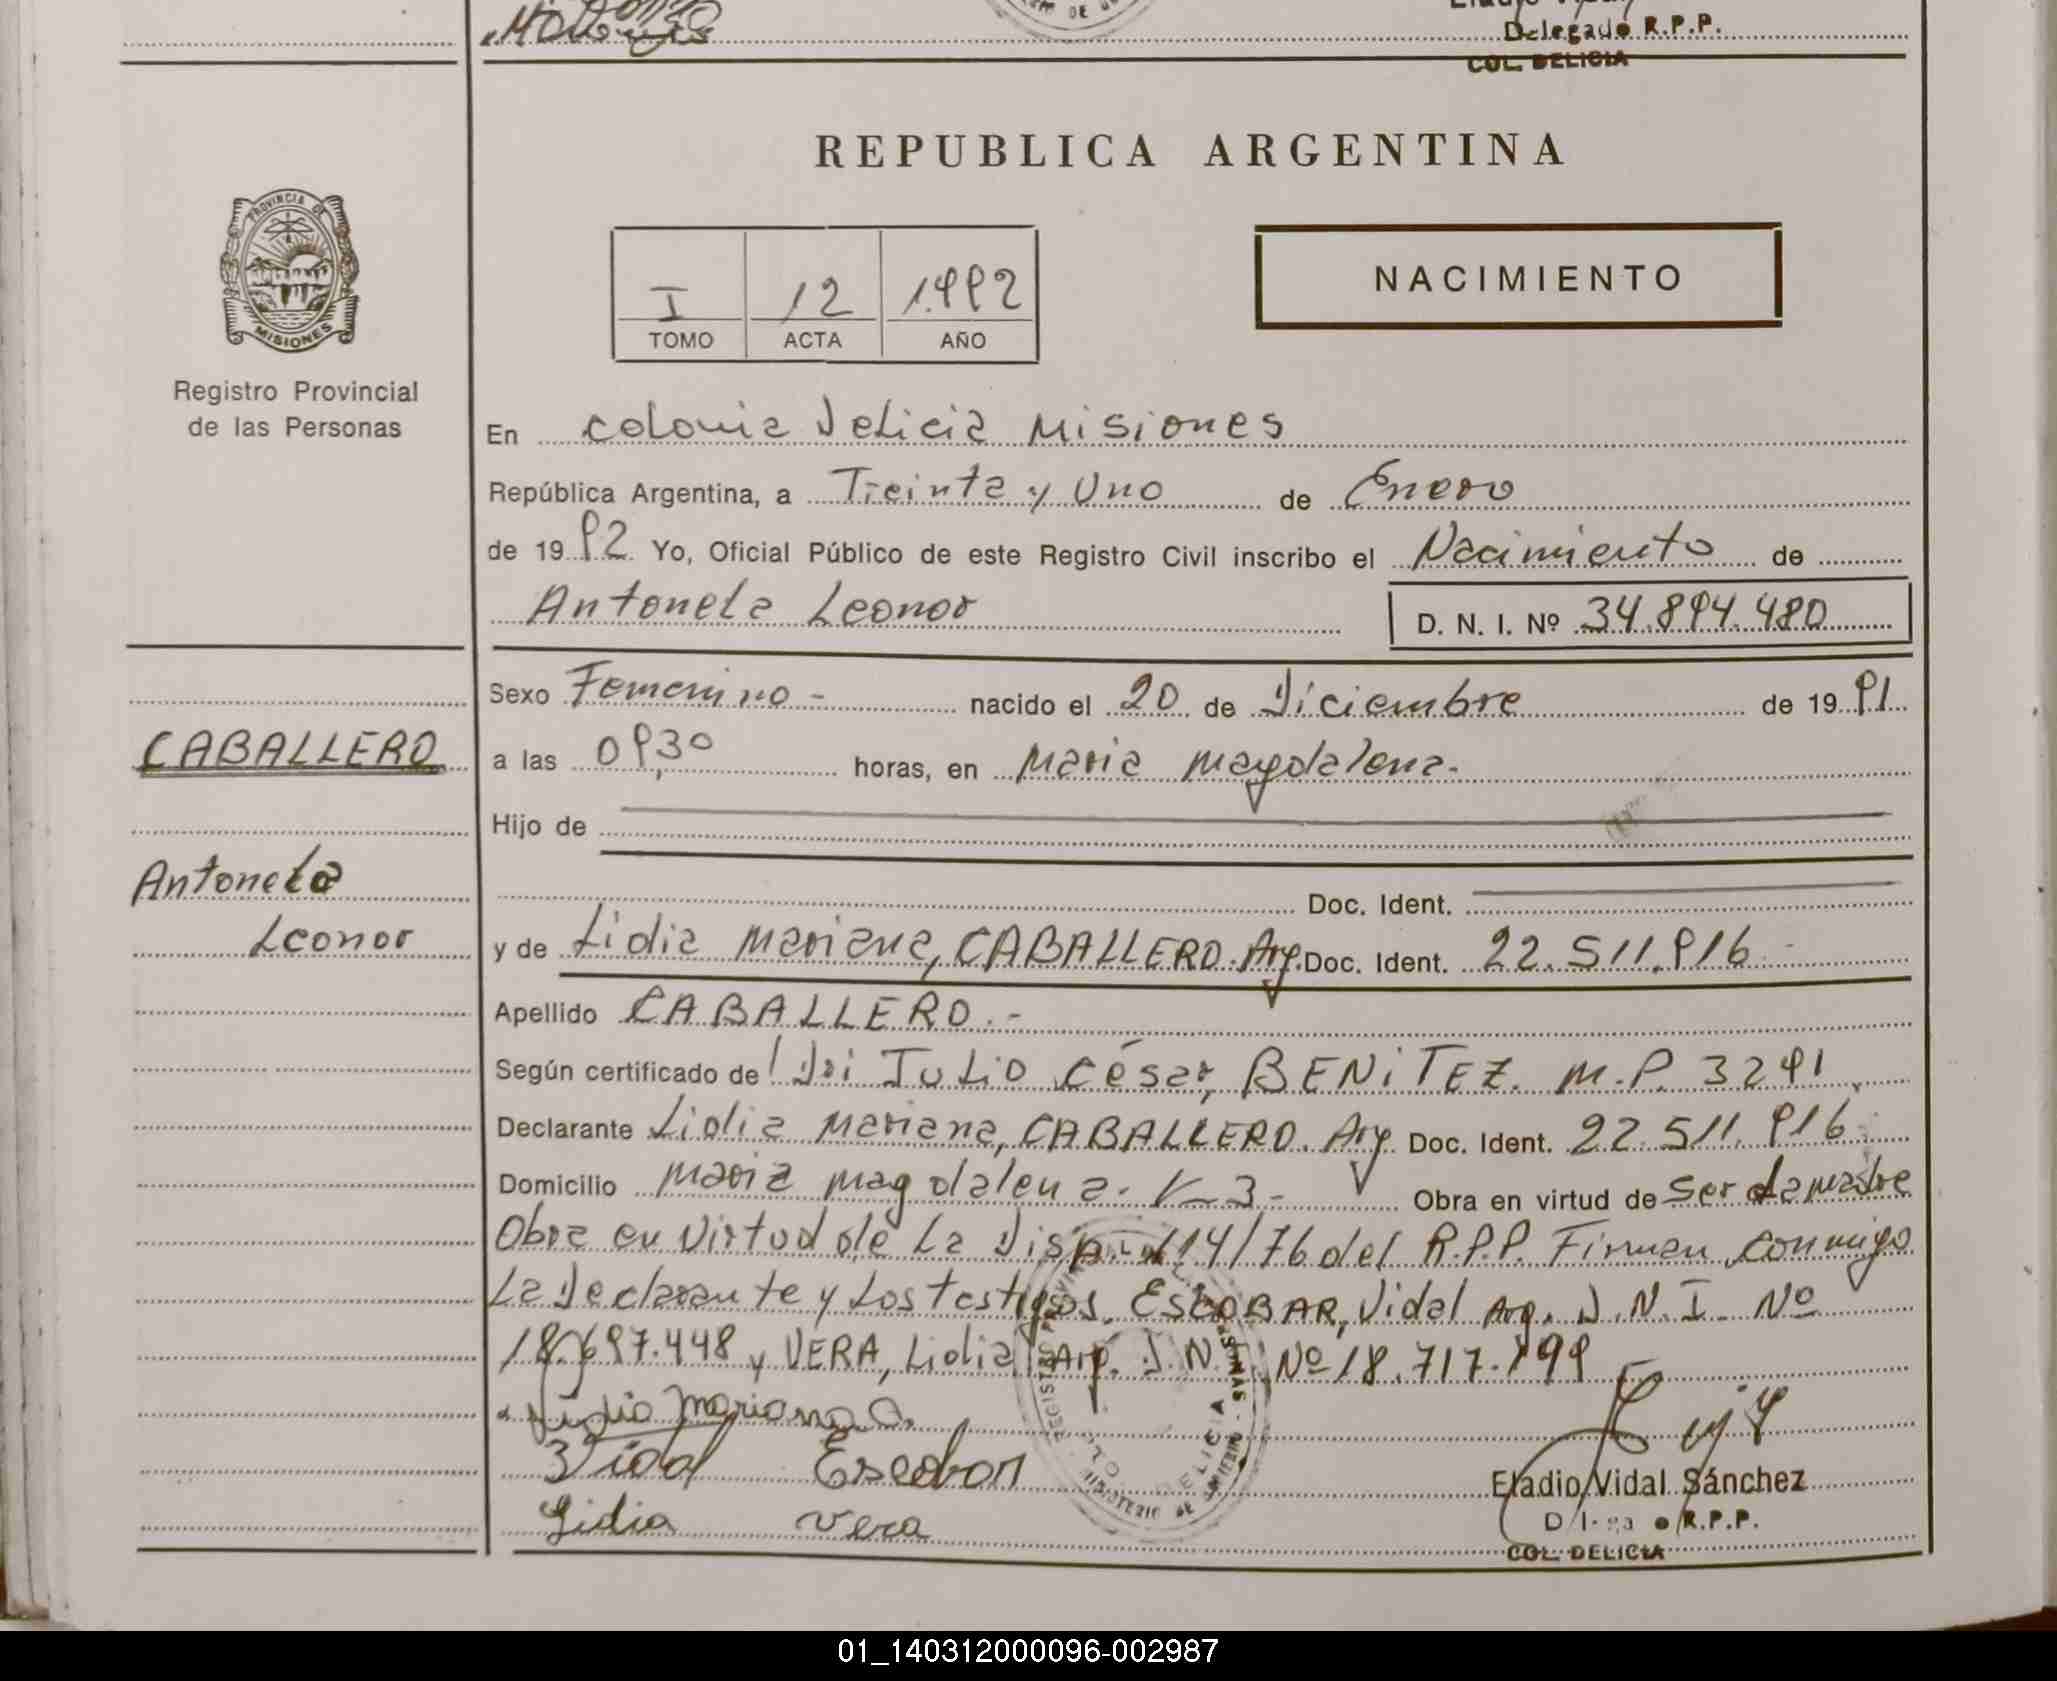 Delegado R.P.P.
COL. DELICIA
REPUBLICA ARGENTINA
PROVINCIA DE
MISIONES
Registro Provincial
de las Personas
I 12 1.992
TOMO ACTA AÑO
NACIMIENTO
En Colonia Delicia Misiones
República Argentina, a Treinta y Uno de Enero
de 19 92 Yo, Oficial Público de este Registro Civil inscribo el Nacimiento de
Antonela Leonor D. N. I. Nº 34.894.480
Sexo Femenino - nacido el 20 de Diciembre de 19 91
CABALLERO
a las 09,30 horas, en Maria Magdalena.
Hijo de
Antonela
Leonor
Doc. Ident.
y de Lidia Mariana, CABALLERO. Arg. Doc. Ident. 22.511.916
Apellido CABALLERO.-
Según certificado de Dr: Julio César, BENITEZ. M.P. 3291
Declarante Lidia Mariana, CABALLERO. Arg. Doc. Ident. 22.511.916
Domicilio Maria Magdalena. K-3- Obra en virtud de Ser La Madre
Obra en Virtud de La Disp. 114/76 del R.P.P. Firman conmigo
La Declarante y Los testigos, ESCOBAR, Vidal Arg. D.N.I. Nº
18.697.448 y VERA, Lidia Arg. D.N.I. Nº 18.717.799
Lidia Mariana C.
Vidal Escobar
Lidia Vera
Eladio Vidal Sánchez
R.P.P.
COL. DELICIA
01_140312000096-002987